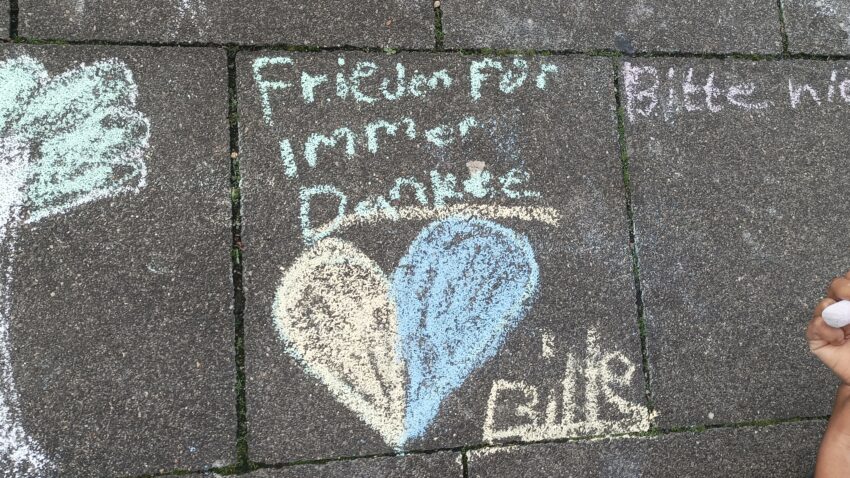 Frieden Für
Immer
Danke
Bitte
Bitte